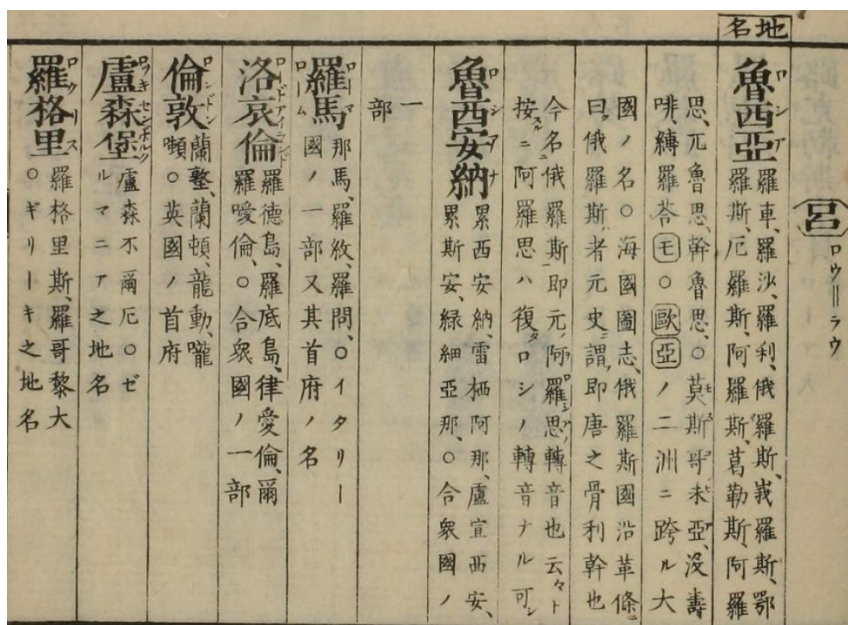 地名
呂
ロウ=ラウ
魯西亞
ロシア
羅車、羅沙、羅利、俄羅斯、峩羅斯、鄂
羅斯、厄羅斯、阿羅斯、葛勒斯、阿羅
思、兀魯思、斡魯思、○莫斯哥未亞、沒壽
啡、縛羅荅モ○歐亞ノ二洲ニ跨ル大
國ノ名○海國圖志、俄羅斯國沿革條ニ
曰、俄羅斯者元史ニ謂、即唐之骨利幹也
今名俄羅斯即元ノ阿羅思ノ轉音也云々ト
按スルニ阿羅思ハ復タロシノ轉音ナル可シ
魯西安納
ロシアナ
累西安納、雷栖阿那、盧宜西安、
累斯安、緑細亞那、○合衆國ノ
一部
羅馬
ローマ
ローム
那馬、羅汶、羅問、○イタリー
國ノ一部又其首府ノ名
洛哀倫
ロードアイランド
羅德島、羅底島、律愛倫、爾
羅噯倫、○合衆國ノ一部
倫敦
ロンドン
蘭墪、蘭頓、龍動、嚨
噸○英國ノ首府
盧森堡
ロウキセンボルク
盧森不爾厄○ゼ
ルマニア之地名
羅格里
ロウリース
羅格里斯、羅哥黎大
○ギリーキ之地名